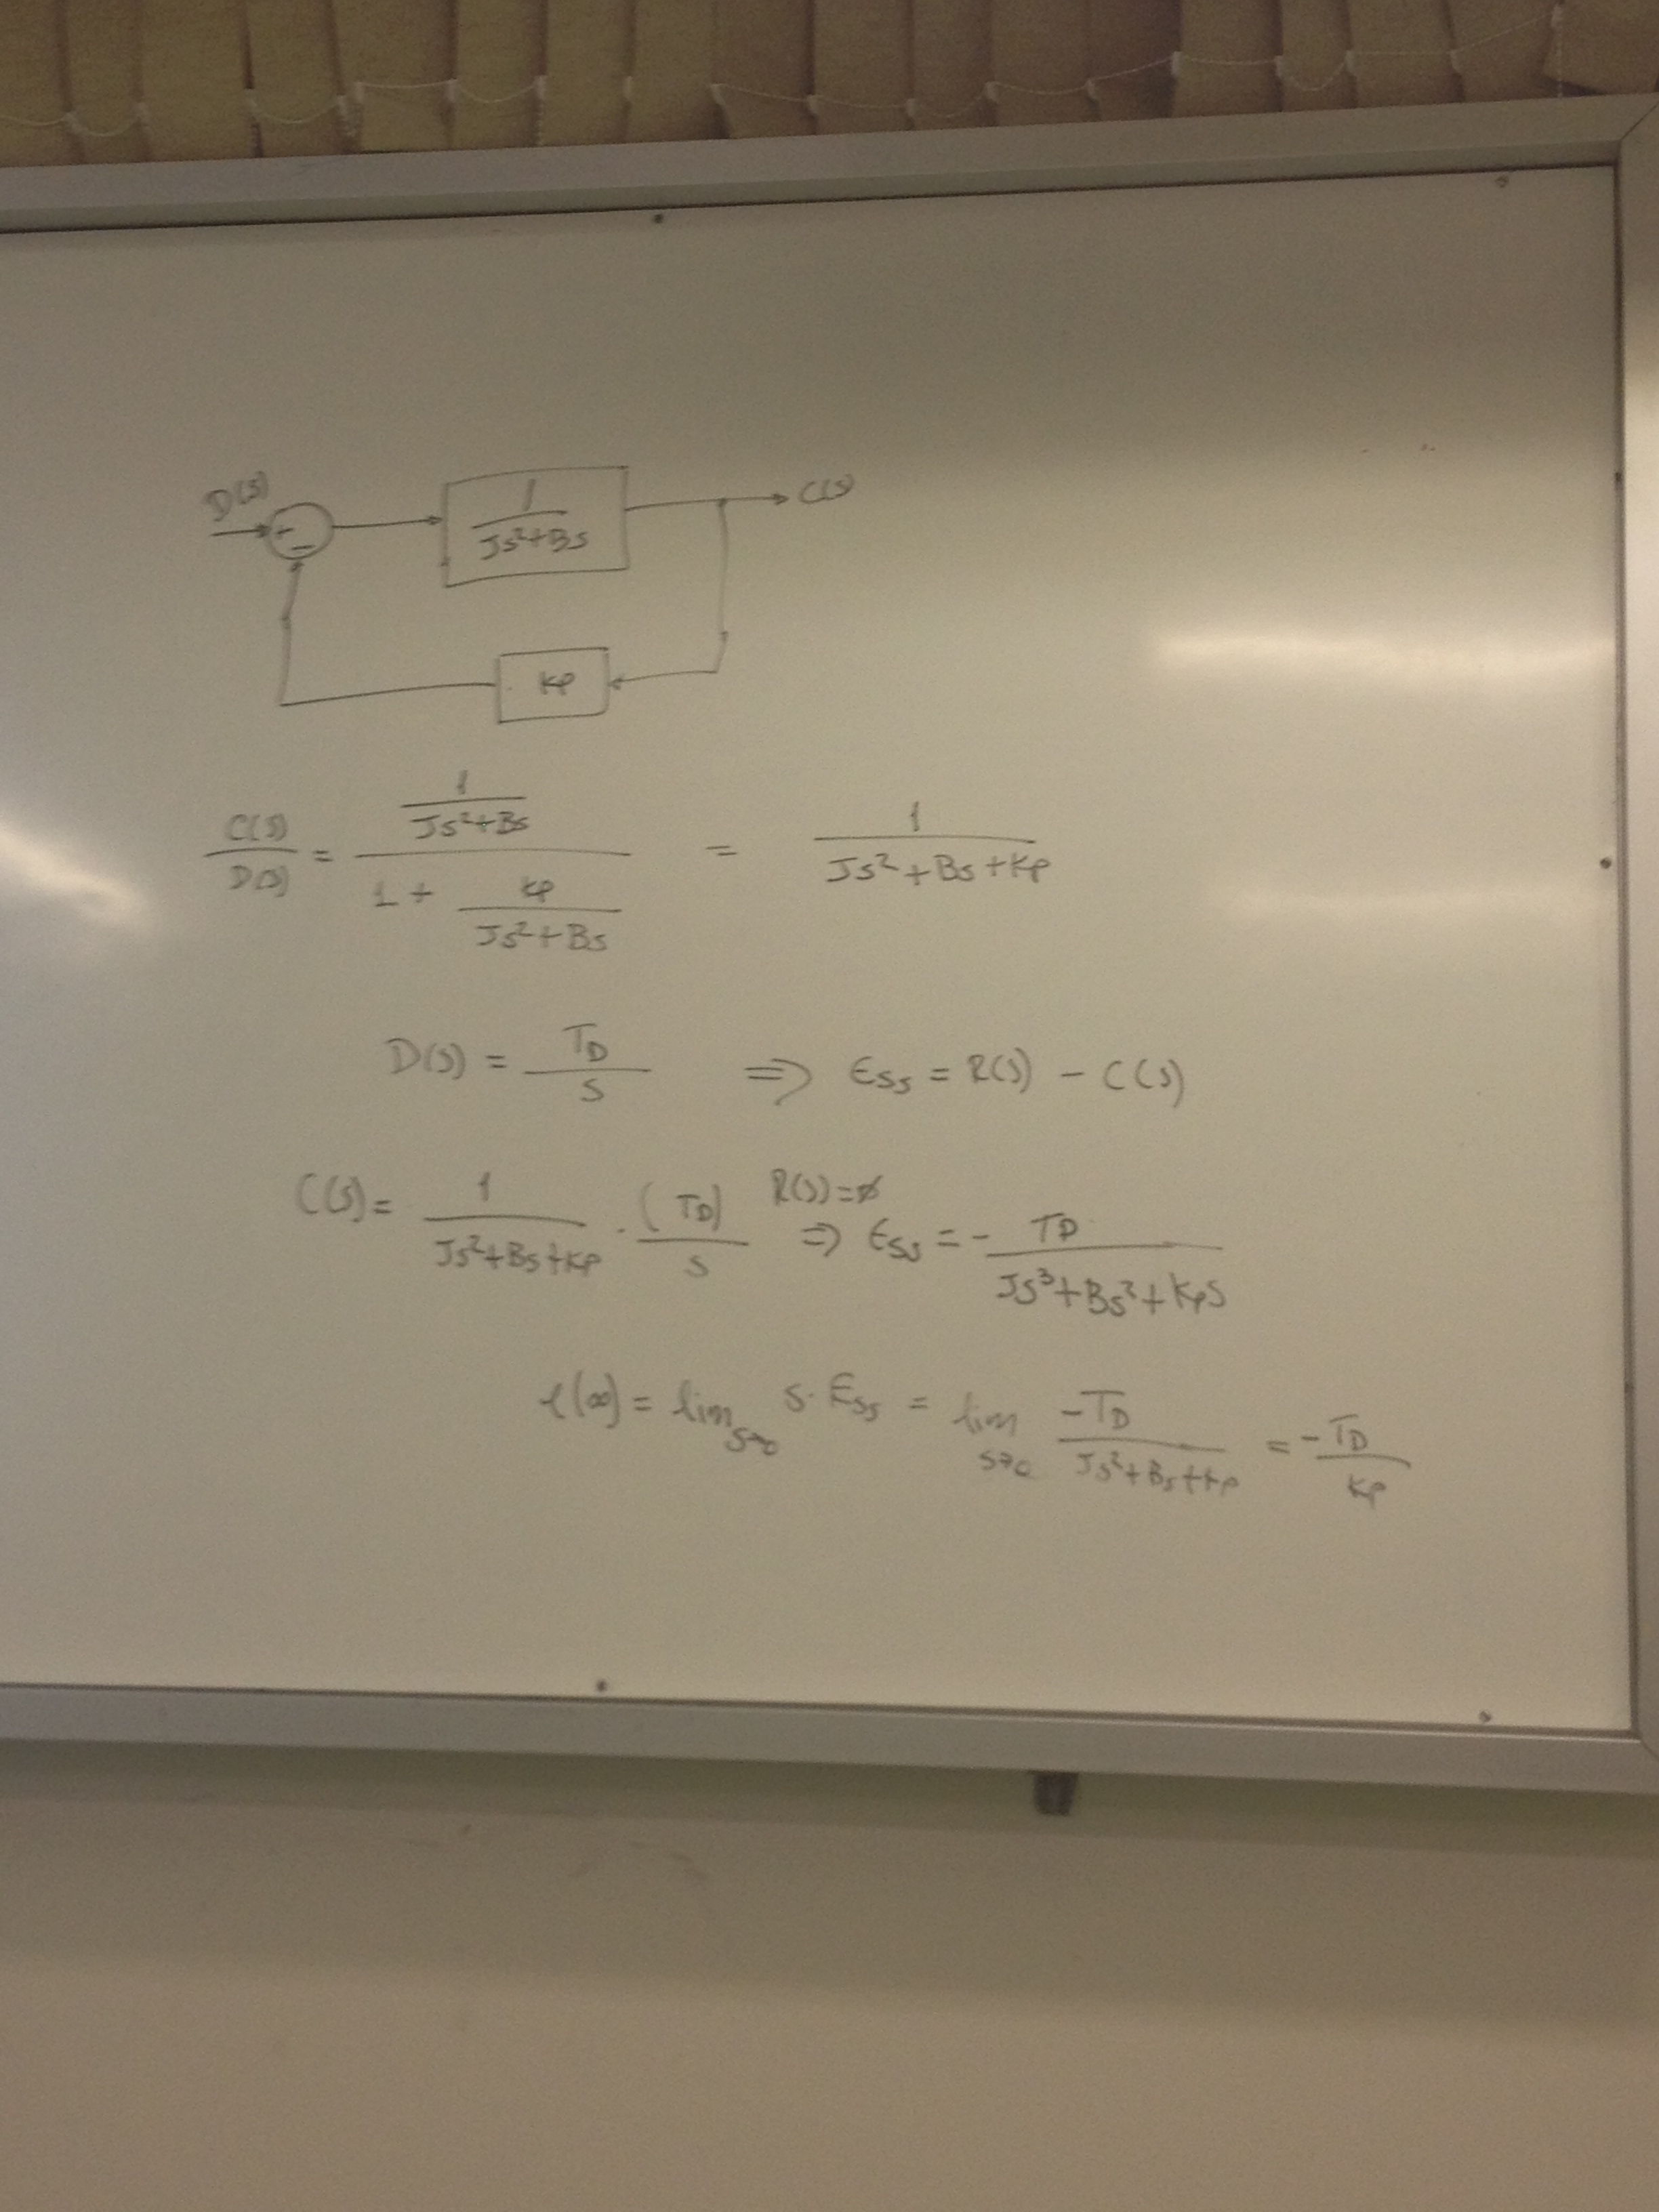 D(s) + − 1/(Js²+Bs) C(s)
Kp
C(s)/D(s) = (1/(Js²+Bs))/(1 + Kp/(Js²+Bs)) = 1/(Js²+Bs+Kp)
D(s) = T_D/s ⇒ E_ss = R(s) − C(s)
C(s) = 1/(Js²+Bs+Kp) · (T_D)/s R(s)=∅ ⇒ E_ss = − T_D/(Js³+Bs²+Kps)
e(∞) = lim_{s→0} s·E_ss = lim_{s→0} −T_D/(Js²+Bs+Kp) = −T_D/Kp